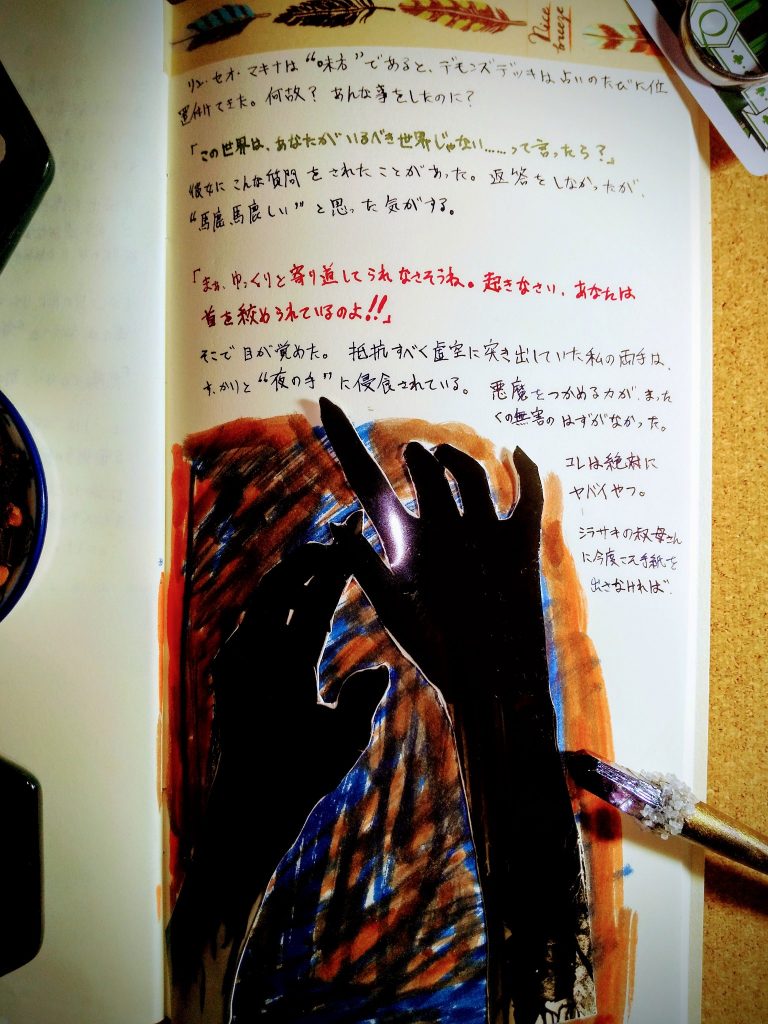 Nice
breeze
リン・セオ・マキナは“味方”であると、デモンズデッキは占いのたびに位
置付けてきた。何故？ あんな事をしたのに？
「この世界は、あなたがいるべき世界じゃない……って言ったら？」
彼女にこんな質問をされたことがあった。返答をしなかったが、
“馬鹿馬鹿しい”と思った気がする。
「まぁ、ゆっくりと寄り道してられなさそうね。起きなさい、あなたは
首を絞められているのよ!!」
そこで目が覚めた。抵抗すべく虚空に突き出していた私の両手は、
すっかりと“夜の手”に侵食されている。
悪魔をつかめる力が、まった
くの無害のはずがなかった。
コレは絶対に
ヤバイやつ。
シラサキの叔母さん
に今度こそ手紙を
出さなければ